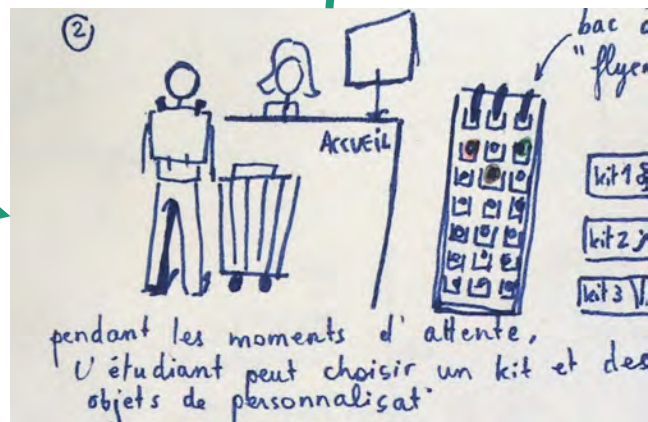 ②
bac
"flye
ACCUEIL
kit 1
kit 2
kit 3
pendant les moments d'attente,
l'étudiant peut choisir un kit et des
objets de personnalisat°